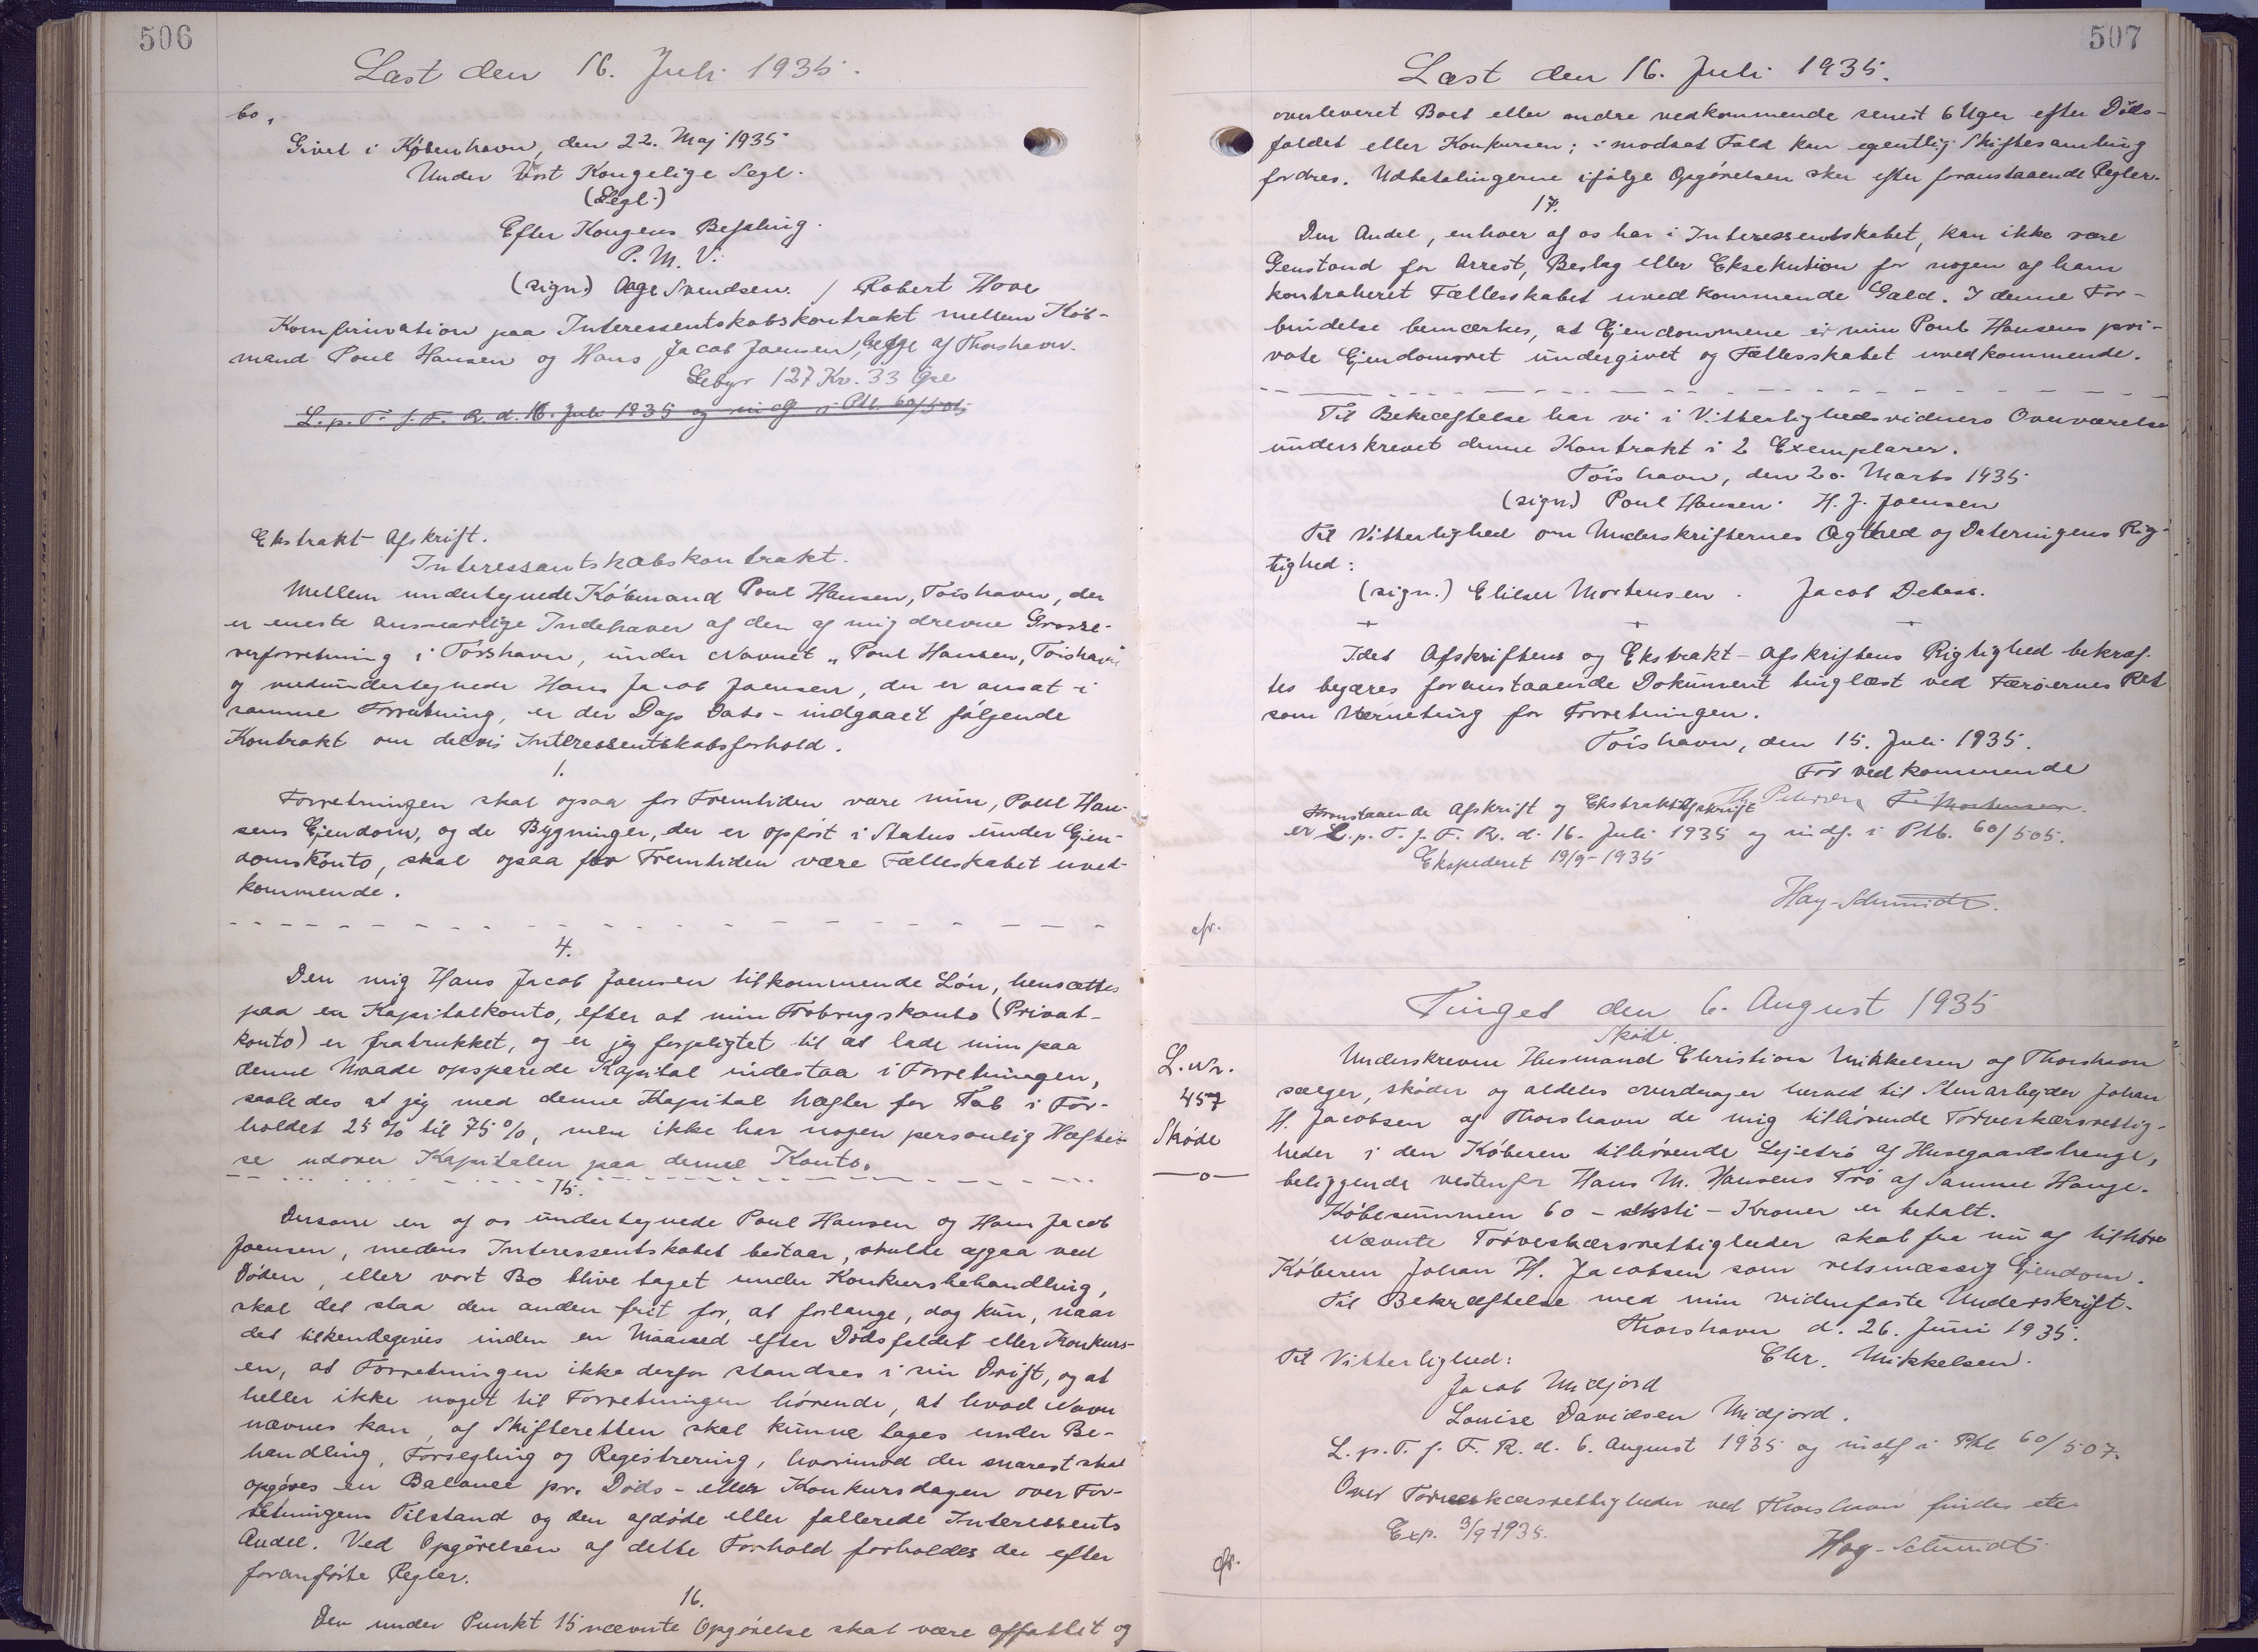 506
Læst den 16. Juli 1935.
bo,
Givet i København, den 22. Maj 1935
Under Vort Kongelige Segl.
(Segl.)
Efter Kongens Befaling.
P. M. V.
(sign) Aage Svendsen. / Robert Hove
Komfirmation paa Interessentskabskontrakt mellem Køb-
mand Poul Hansen og Hans Jacob Joensen, begge af Thorshavn.
Gebyr 127 Kr. 33 Øre
L. p. T. f. F. R. d. 16. Juli 1935 og indf i Ptb. 60/505
Ekstrakt-Afskrift.
Interessantskabskontrakt.
Mellem undertegnede Købmand Poul Hansen, Tórshavn, der
er eneste ansvarlige Indehaver af den af mig drevne Grosse-
rerforretning i Tórshavn, under Navnet "Poul Hansen, Tórshavn"
og medundertegnede Hans Jacob Joensen, der er ansat i
samme Forretning, er der Dags Dato - indgaaet følgende
Kontrakt om delvis Interessentskabsforhold.
1.
Forretningen skal ogsaa for Fremtiden være min, Poul Han-
sens Ejendom, og de Bygninger, der er opført i Status under Ejen-
domskonto, skal ogsaa for Fremtiden være Fælleskabet uved-
kommende.
4.
Den mig Hans Jacob Joensen tilkommende Løn, hensættes
paa en Kapitalkonto, efter at min Forbrugskonto (Privat-
konto) er fratrukket, og er jeg forpligtet til at lade min paa
denne Maade opsparede Kapital indestaa i Forretningen,
saaledes at jeg med denne Kapital hæfter for Tab i For-
holdet 25 % til 75 %, men ikke har nogen personlig Hæftel-
se udover Kapitalen paa denne Konto.
15.
Dersom en af os undertegnede Poul Hansen og Hans Jacob
Joensen, medens Interessentskabet bestaar, skulde afgaa ved
Døden, eller vort Bo blive taget under Konkursbehandling,
skal det staa den anden frit for, at forlange, dog kun, naar
det tilkendegives inden en Maaned efter Dødsfaldet eller Konkurs-
en, at Forretningen ikke derfor standses i sin Drift, og at
heller ikke noget til Forretningen hørende, at hvad Navn
nævnes kan, af Skifteretten skal kunne tages under Be-
handling, Forsegling og Registrering, hvorimod der snarest skal
opgøres en Balance pr. Døds- eller Konkursdagen over For-
retningens Tilstand og den afdøde eller fallerede Interessents
Andel. Ved Opgørelsen af dette Forhold forholdes der efter
foranførte Regler.
16.
Den under Punkt 15 nævnte Opgørelse skal være affattet og
507
Læst den 16. Juli 1935.
overleveret Boet eller andre vedkommende senest 6 Uger efter Døds-
faldet eller Konkursen; i modsat Fald kan egentlig Skiftesamling
fordres. Udbetalingerne ifølge Opgørelsen sker efter foranstaaende Regler.
17.
Den Andel, enhver af os har i Interessentskabet, kan ikke være
Genstand for Arrest, Beslag eller Eksekution for nogen af ham
kontraheret Fællesskabet uvedkommende Gæld. I denne For-
bindelse bemærkes, at Ejendommene er min Poul Hansens pri-
vate Ejendomsret undergivet og Fællesskabet uvedkommende.
Til Bekræftelse har vi i Vitterlighedsvidners Overværelse
underskrevet denne Kontrakt i 2 Exemplarer.
Tórshavn, den 20. Marts 1935
(sign) Poul Hansen. H. J. Joensen
Til Vitterlighed om Underskrifternes Ægthed og Dateringens Rig-
tighed:
(sign.) Elieser Mortensen. Jacob Debess.
Idet Afskriftens og Ekstrakt-Afskriftens Rigtighed bekræf-
tes begæres foranstaaende Dokument tinglæst ved Færøernes Ret
som Værneting for Forretningen.
Tórshavn, den 15. Juli 1935.
For vedkommende
Foranstaaende Afskrift og Ekstraktafskrift
er L. p. T. f. F. R. d. 16. Juli 1935 og indf. i Ptb. 60/505.
Ekspederet 19/9-1935
Hay-Schmidt.
cfr.
Tinget den 6. August 1935
Skøde.
L. Nr.
457
Skøde
Underskrevne Husmand Christian Mikkelsen af Thorshavn
sælger, skøder og aldeles overdrager herved til Stenarbejder Johan
H. Jacobsen af Thorshavn de mig tilhørende Tørveskærsrettig-
heder i den Køberen tilhørende Lejetrø af Husegaardshauge,
beliggende vestenfor Hans M. Hansens Trø af Samme Hauge.
Købesummen 60 - seksti - Kroner er betalt.
Nævnte Tørveskærsrettigheder skal fra nu af tilhøre
Køberen Johan H. Jacobsen som retsmæssig Ejendom.
Til Bekræftelse med min vidnefaste Underskrift.
Thorshavn d. 26. Juni 1935.
Til Vitterlighed: Chr. Mikkelsen.
Jacob Midjord
Louise Davidsen Midjord.
L. p. T. f. F. R. d. 6. August 1935 og indf i Ptb 60/507.
Over Tørveskærsrettigheder ved Thorshavn findes
Exp. 3/9 1935.
Hay-Schmidt.
cfr.